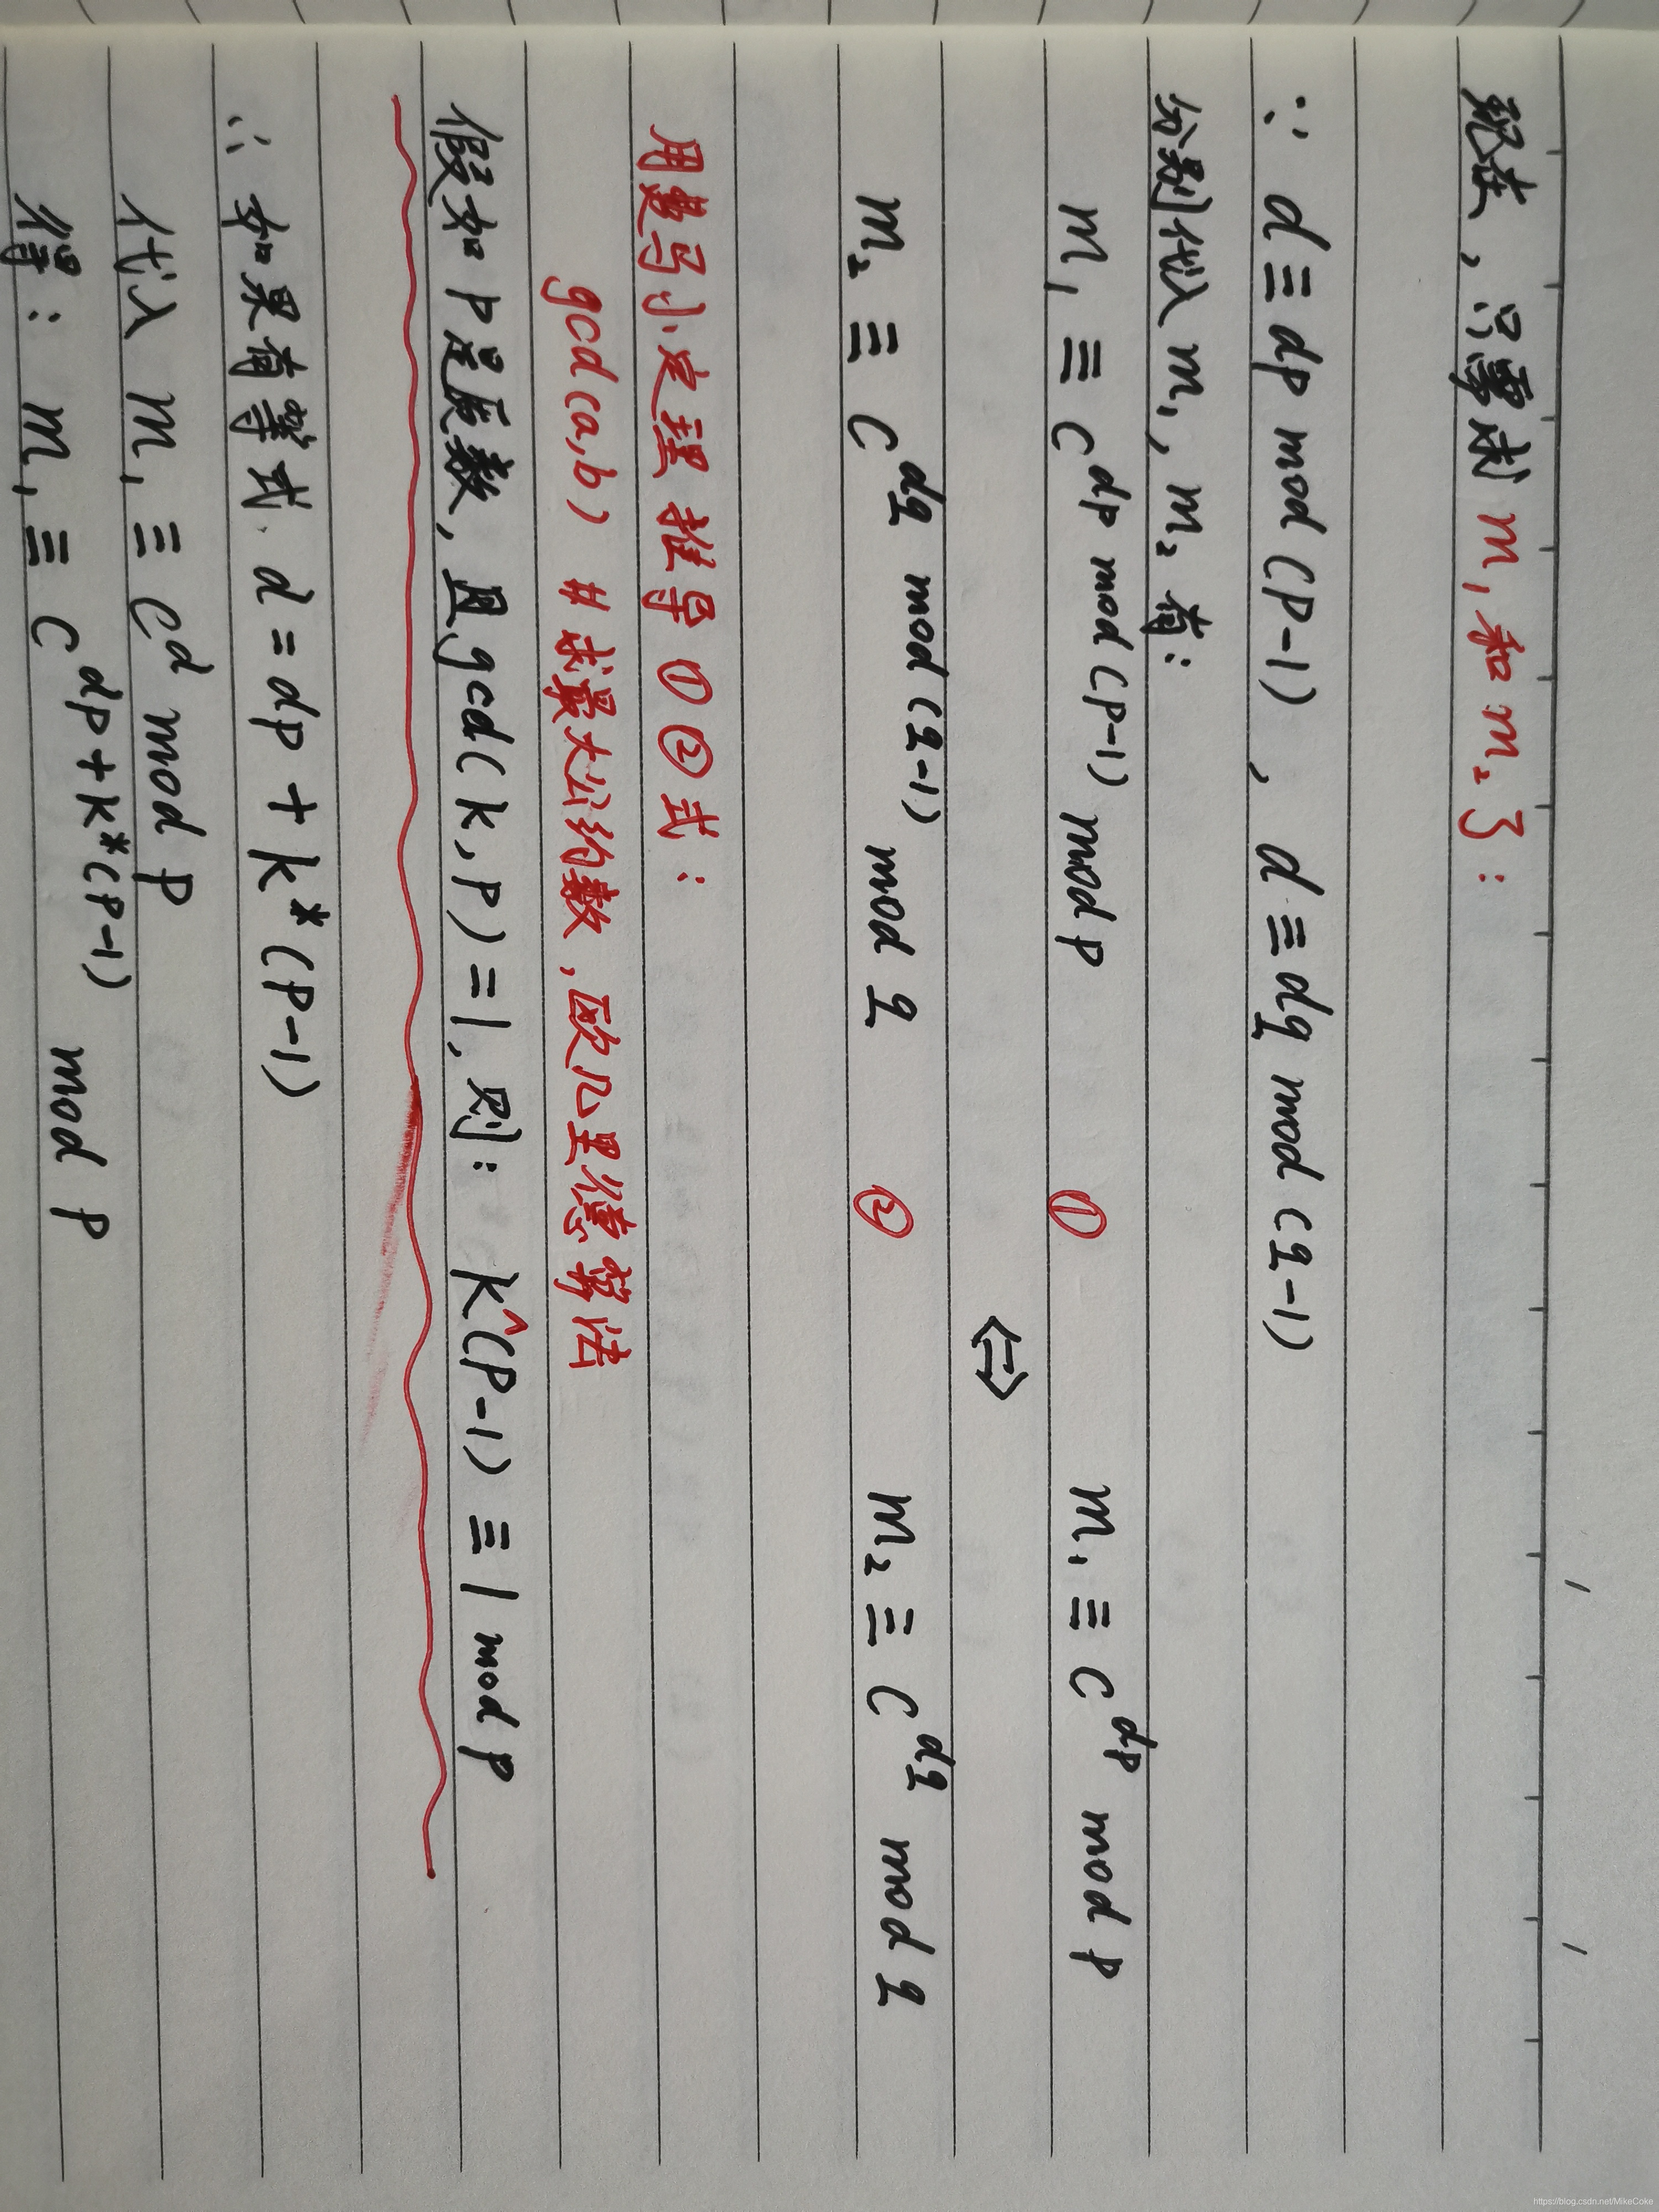 现在，只需求 m₁ 和 m₂ 了：
∵ d ≡ dp mod (p-1) , d ≡ dq mod (q-1)
分别代入 m₁, m₂ 有：
m₁ ≡ c^dp mod (p-1) mod p ① m₁ ≡ c^dp mod p
⇔
m₂ ≡ c^dq mod (q-1) mod q ② m₂ ≡ c^dq mod q
用费马小定理推导①②式：
gcd(a,b) # 求最大公约数，欧几里德算法
假如 p 是质数，且 gcd(k,p)=1, 则： k^(p-1) ≡ 1 mod p
∵ 如果有等式. d = dp + k*(p-1)
代入 m₁ ≡ c^d mod p
得： m₁ ≡ c^dp+k*(p-1) mod p
https://blog.csdn.net/MikeCoke